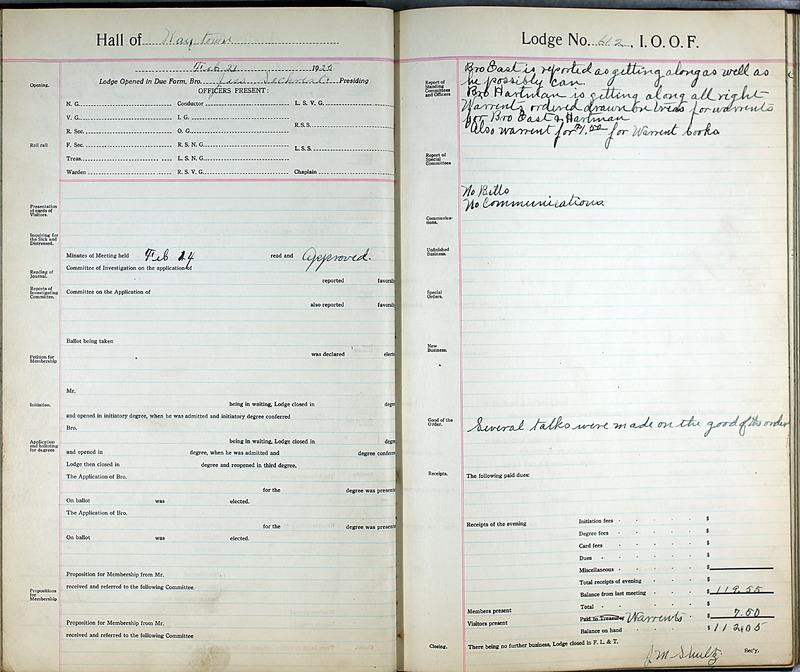 Hall of Waytown
Feb 21 1925
Opening.
Lodge Opened in Due Form, Bro. Presiding
OFFICERS PRESENT:
N. G. Conductor L. S. V. G.
V. G. I. G.
R.S.S.
R. Sec. O. G.
Roll call
F. Sec. R. S. N. G.
L.S.S.
Treas. L. S. N. G.
Warden R. S. V. G. Chaplain
Presentation of cards of Visitors.
Inquiring for the Sick and Distressed.
Minutes of Meeting held Feb 14 read and Approved.
Reading of Journal.
Committee of Investigation on the application of
reported favorab
Reports of Investigating Committee.
Committee on the Application of
also reported favorab
Ballot being taken
Petition for Membership
was declared elect
Mr.
Initiation.
being in waiting, Lodge closed in degr
and opened in initiatory degree, when he was admitted and initiatory degree conferred
Bro.
Application and balloting for degrees
being in waiting, Lodge closed in degr
and opened in degree, when he was admitted and degree confer
Lodge then closed in degree and reopened in third degree.
The Application of Bro.
for the degree was present
On ballot was elected.
The Application of Bro.
for the degree was present
On ballot was elected.
Proposition for Membership from Mr.
Propositions for Membership.
received and referred to the following Committee
Proposition for Membership from Mr.
received and referred to the following Committee
Lodge No. 612, I. O. O. F.
Report of Standing Committees and Officers
Bro East is reported as getting along as well as
he possibly can
Bro Hartman is getting along all right
Warrents ordered drawn on treas for warrents
for Bro East & Hartman
Also warrent for $1.50 for Warrent books
Report of Special Committees
No Bills
No Communications.
Communications.
Unfinished Business.
Special Orders.
New Business.
Good of the Order.
Several talks were made on the good of the order
Receipts.
The following paid dues:
Receipts of the evening
Initiation fees $
Degree fees $
Card fees $
Dues $
Miscellaneous $
Total receipts of evening $
Balance from last meeting $ 119.55
Total $
Members present
Paid to Treasurer Warrents $ 7.50
Visitors present
Balance on hand $ 112.05
Closing.
There being no further business, Lodge closed in F. L. & T.
J M Shultz Sec'y.